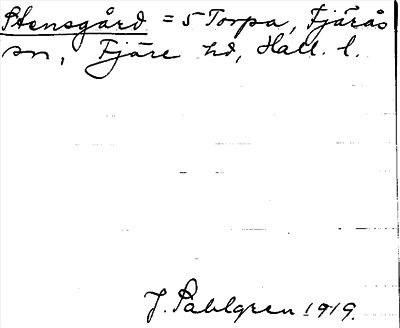 Stensgård = 5 Torpa, Fjärås
sn, Fjäre hd, Hall. l.
J. Påhlgren 1919.